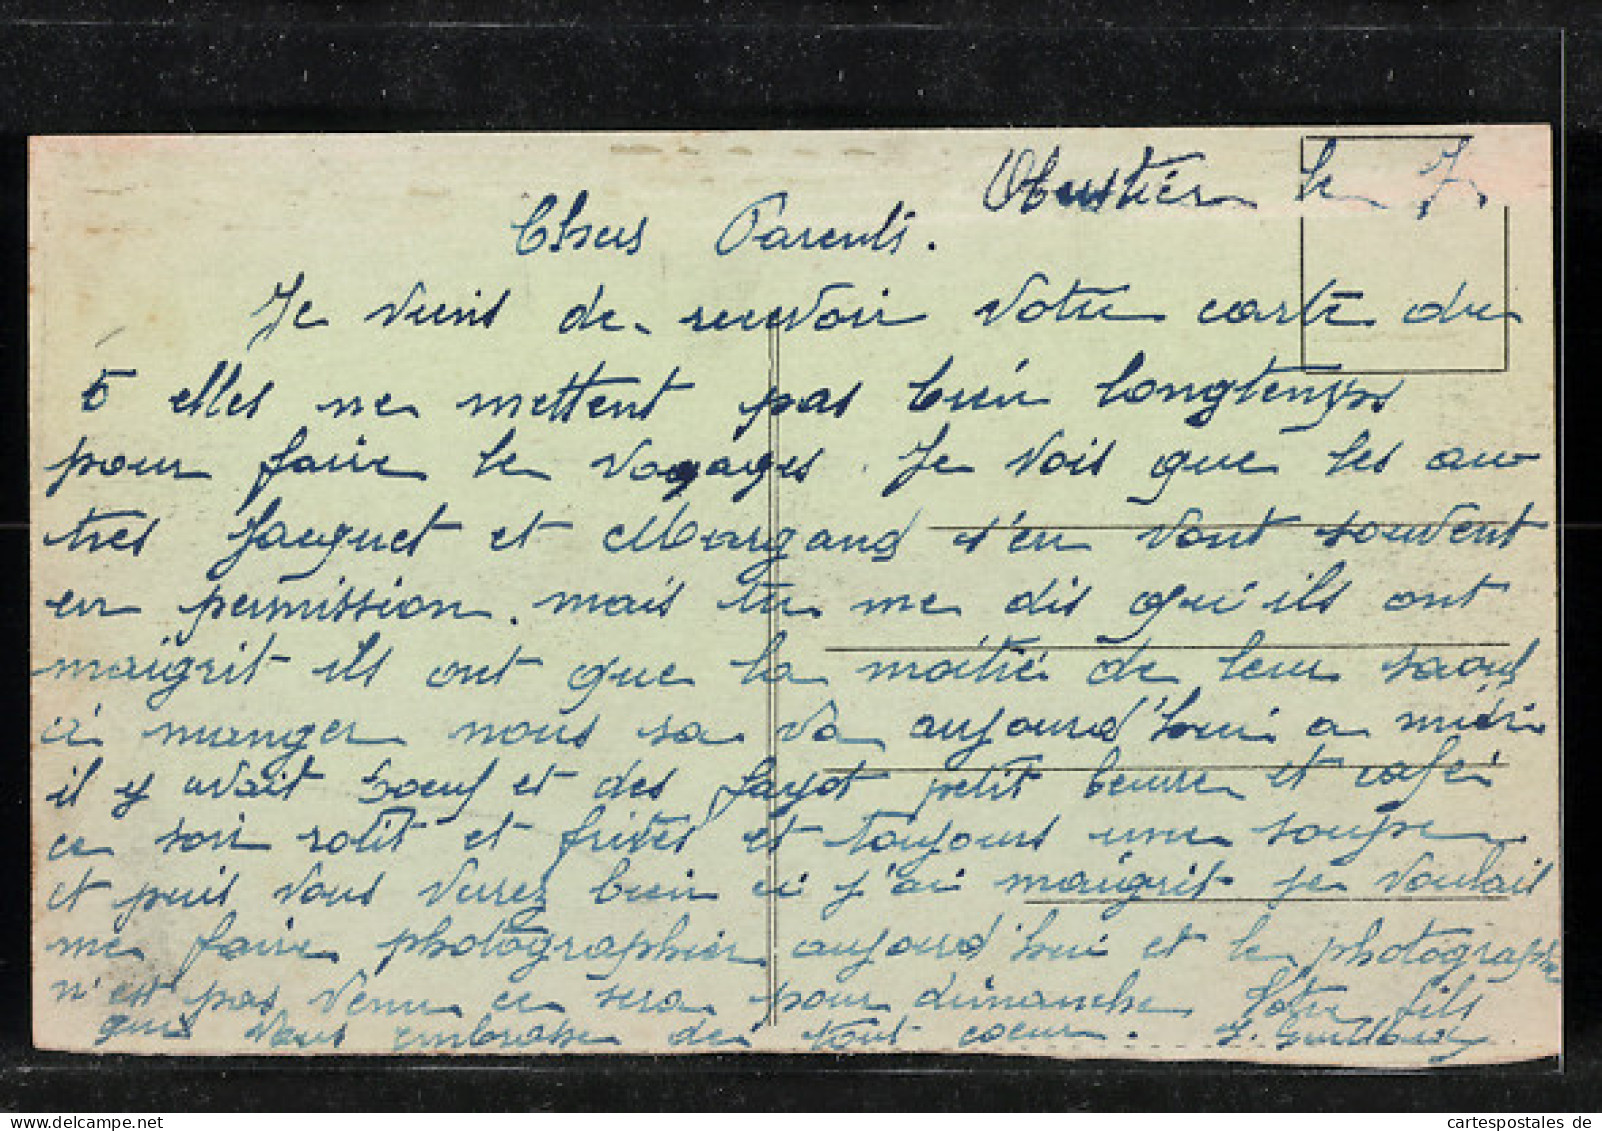 le 7
Chers Parents.
Je viens de recevoir votre carte du
5 elles ne mettent pas bien longtemps
pour faire le voyages. Je vois que les au
tres Jacquet et Morgand s'en vont souvent
en permission. mais tu me dis qu'ils ont
maigrit ils ont que la moitié de leur saoul
a manger nous sa va aujourd'hui a midi
il y avait bœuf et des fayot petit beurre et café
ce soir rotit et frites et toujours une soupe
et puis vous verrez bien si j'ai maigrit je voulait
me faire photographier aujourd'hui et le photographe
n'est pas venu ce sera pour dimanche Votre fils
qui vous embrasse de tout cœur.
www.cartespostales.de